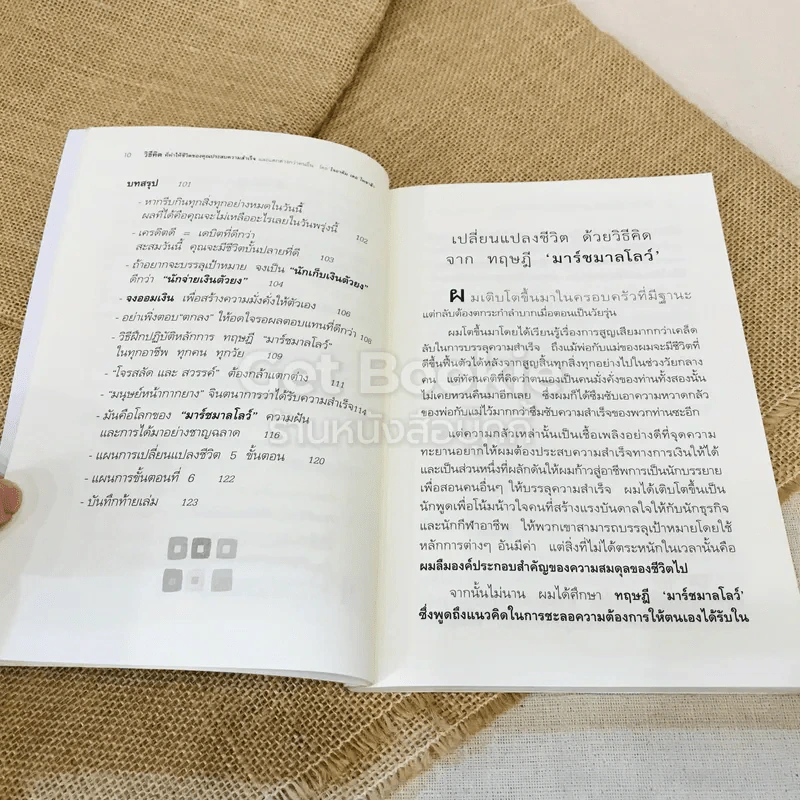 10 วิธีคิด ที่ทำให้ชีวิตของคุณประสบความสำเร็จ
บทสรุป 101
- หากรีบกินทุกสิ่งทุกอย่างหมดในวันนี้
ผลที่ได้คือคุณจะไม่เหลืออะไรเลยในวันพรุ่งนี้ 102
- เครดิตดี = เดบิตที่ดีกว่า
สะสมวันนี้ คุณจะมีชีวิตบั้นปลายที่ดี 103
- ถ้าอยากจะบรรลุเป้าหมาย จงเป็น "นักเก็บเงินตัวยง"
ดีกว่า "นักจ่ายเงินตัวยง" 104
- จงออมเงิน เพื่อสร้างความมั่งคั่งให้ตัวเอง 106
- อย่าเพิ่งตอบ"ตกลง" ให้อดใจรอผลตอบแทนที่ดีกว่า 108
- วิธีฝึกปฏิบัติหลักการ ทฤษฎี "มาร์ชมาลโลว์"
ในทุกอาชีพ ทุกคน ทุกวัย 109
- "โจรสลัด และ สวรรค์" ต้องกล้าแตกต่าง 111
- "มนุษย์หน้ากากยาง" จินตนาการว่าได้รับความสำเร็จ 114
- มันคือโลกของ "มาร์ชมาลโลว์" ความฝัน
และการได้มาอย่างชาญฉลาด 116
- แผนการเปลี่ยนแปลงชีวิต 5 ขั้นตอน 120
- แผนการขั้นตอนที่ 6 122
- บันทึกท้ายเล่ม 123
เปลี่ยนแปลงชีวิต ด้วยวิธีคิด
จาก ทฤษฎี 'มาร์ชมาลโลว์'
ผมเติบโตขึ้นมาในครอบครัวที่มีฐานะ
แต่กลับต้องตกระกำลำบากเมื่อตอนเป็นวัยรุ่น
ผมโตขึ้นมาโดยได้เรียนรู้เรื่องการสูญเสียมากกว่าเคล็ด
ลับในการบรรลุความสำเร็จ ถึงแม้พ่อกับแม่ของผมจะมีชีวิตที่
ดีขึ้นฟื้นตัวได้หลังจากสูญสิ้นทุกสิ่งทุกอย่างไปในช่วงวัยกลาง
คน แต่ทัศนคติที่คิดว่าตนเองเป็นคนมั่งคั่งของท่านทั้งสองนั้น
ไม่เคยหวนคืนมาอีกเลย ซึ่งผมก็ได้ซึมซับเอาความหวาดกลัว
ของพ่อกับแม่ไว้มากกว่าซึมซับความสำเร็จของพวกท่านซะอีก
แต่ความกลัวเหล่านั้นเป็นเชื้อเพลิงอย่างดีที่จุดความ
ทะยานอยากให้ผมต้องประสบความสำเร็จทางการเงินให้ได้
และเป็นส่วนหนึ่งที่ผลักดันให้ผมก้าวสู่อาชีพการเป็นนักบรรยาย
เพื่อสอนคนอื่นๆ ให้บรรลุความสำเร็จ ผมได้เติบโตขึ้นเป็น
นักพูดเพื่อโน้มน้าวใจคนที่สร้างแรงบันดาลใจให้กับนักธุรกิจ
และนักกีฬาอาชีพ ให้พวกเขาสามารถบรรลุเป้าหมายโดยใช้
หลักการต่างๆ อันมีค่า แต่สิ่งที่ไม่ได้ตระหนักในเวลานั้นคือ
ผมลืมองค์ประกอบสำคัญของความสมดุลของชีวิตไป
จากนั้นไม่นาน ผมได้ศึกษา ทฤษฎี 'มาร์ชมาลโลว์'
ซึ่งพูดถึงแนวคิดในการชะลอความต้องการให้ตนเองได้รับใน
Get Bookie
ร้านหนังสือมือ